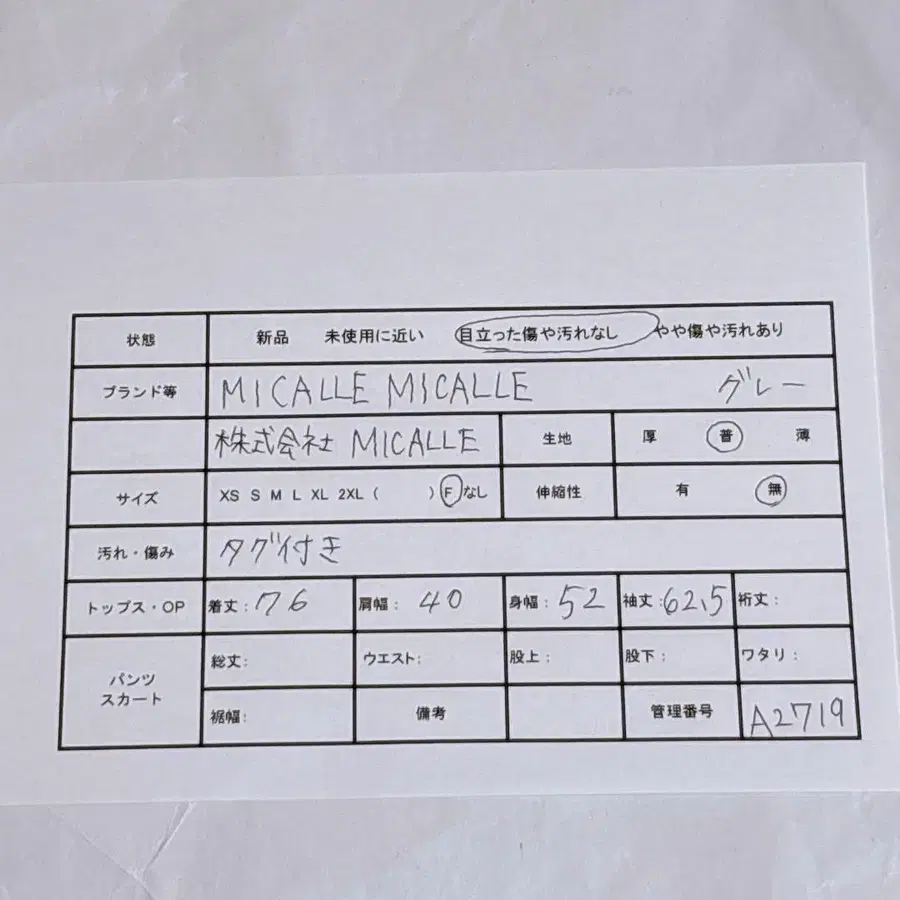 状態 新品 未使用に近い 目立った傷や汚れなし やや傷や汚れあり
ブランド等 MICALLE MICALLE グレー
株式会社 MICALLE 生地 厚 普 薄
サイズ XS S M L XL 2XL ( ) F なし 伸縮性 有 無
汚れ・傷み タグ付き
トップス・OP 着丈:76 肩幅: 40 身幅:52 袖丈:62.5 裄丈:
パンツ
スカート
総丈: ウエスト: 股上: 股下: ワタリ:
裾幅: 備考 管理番号 A2719